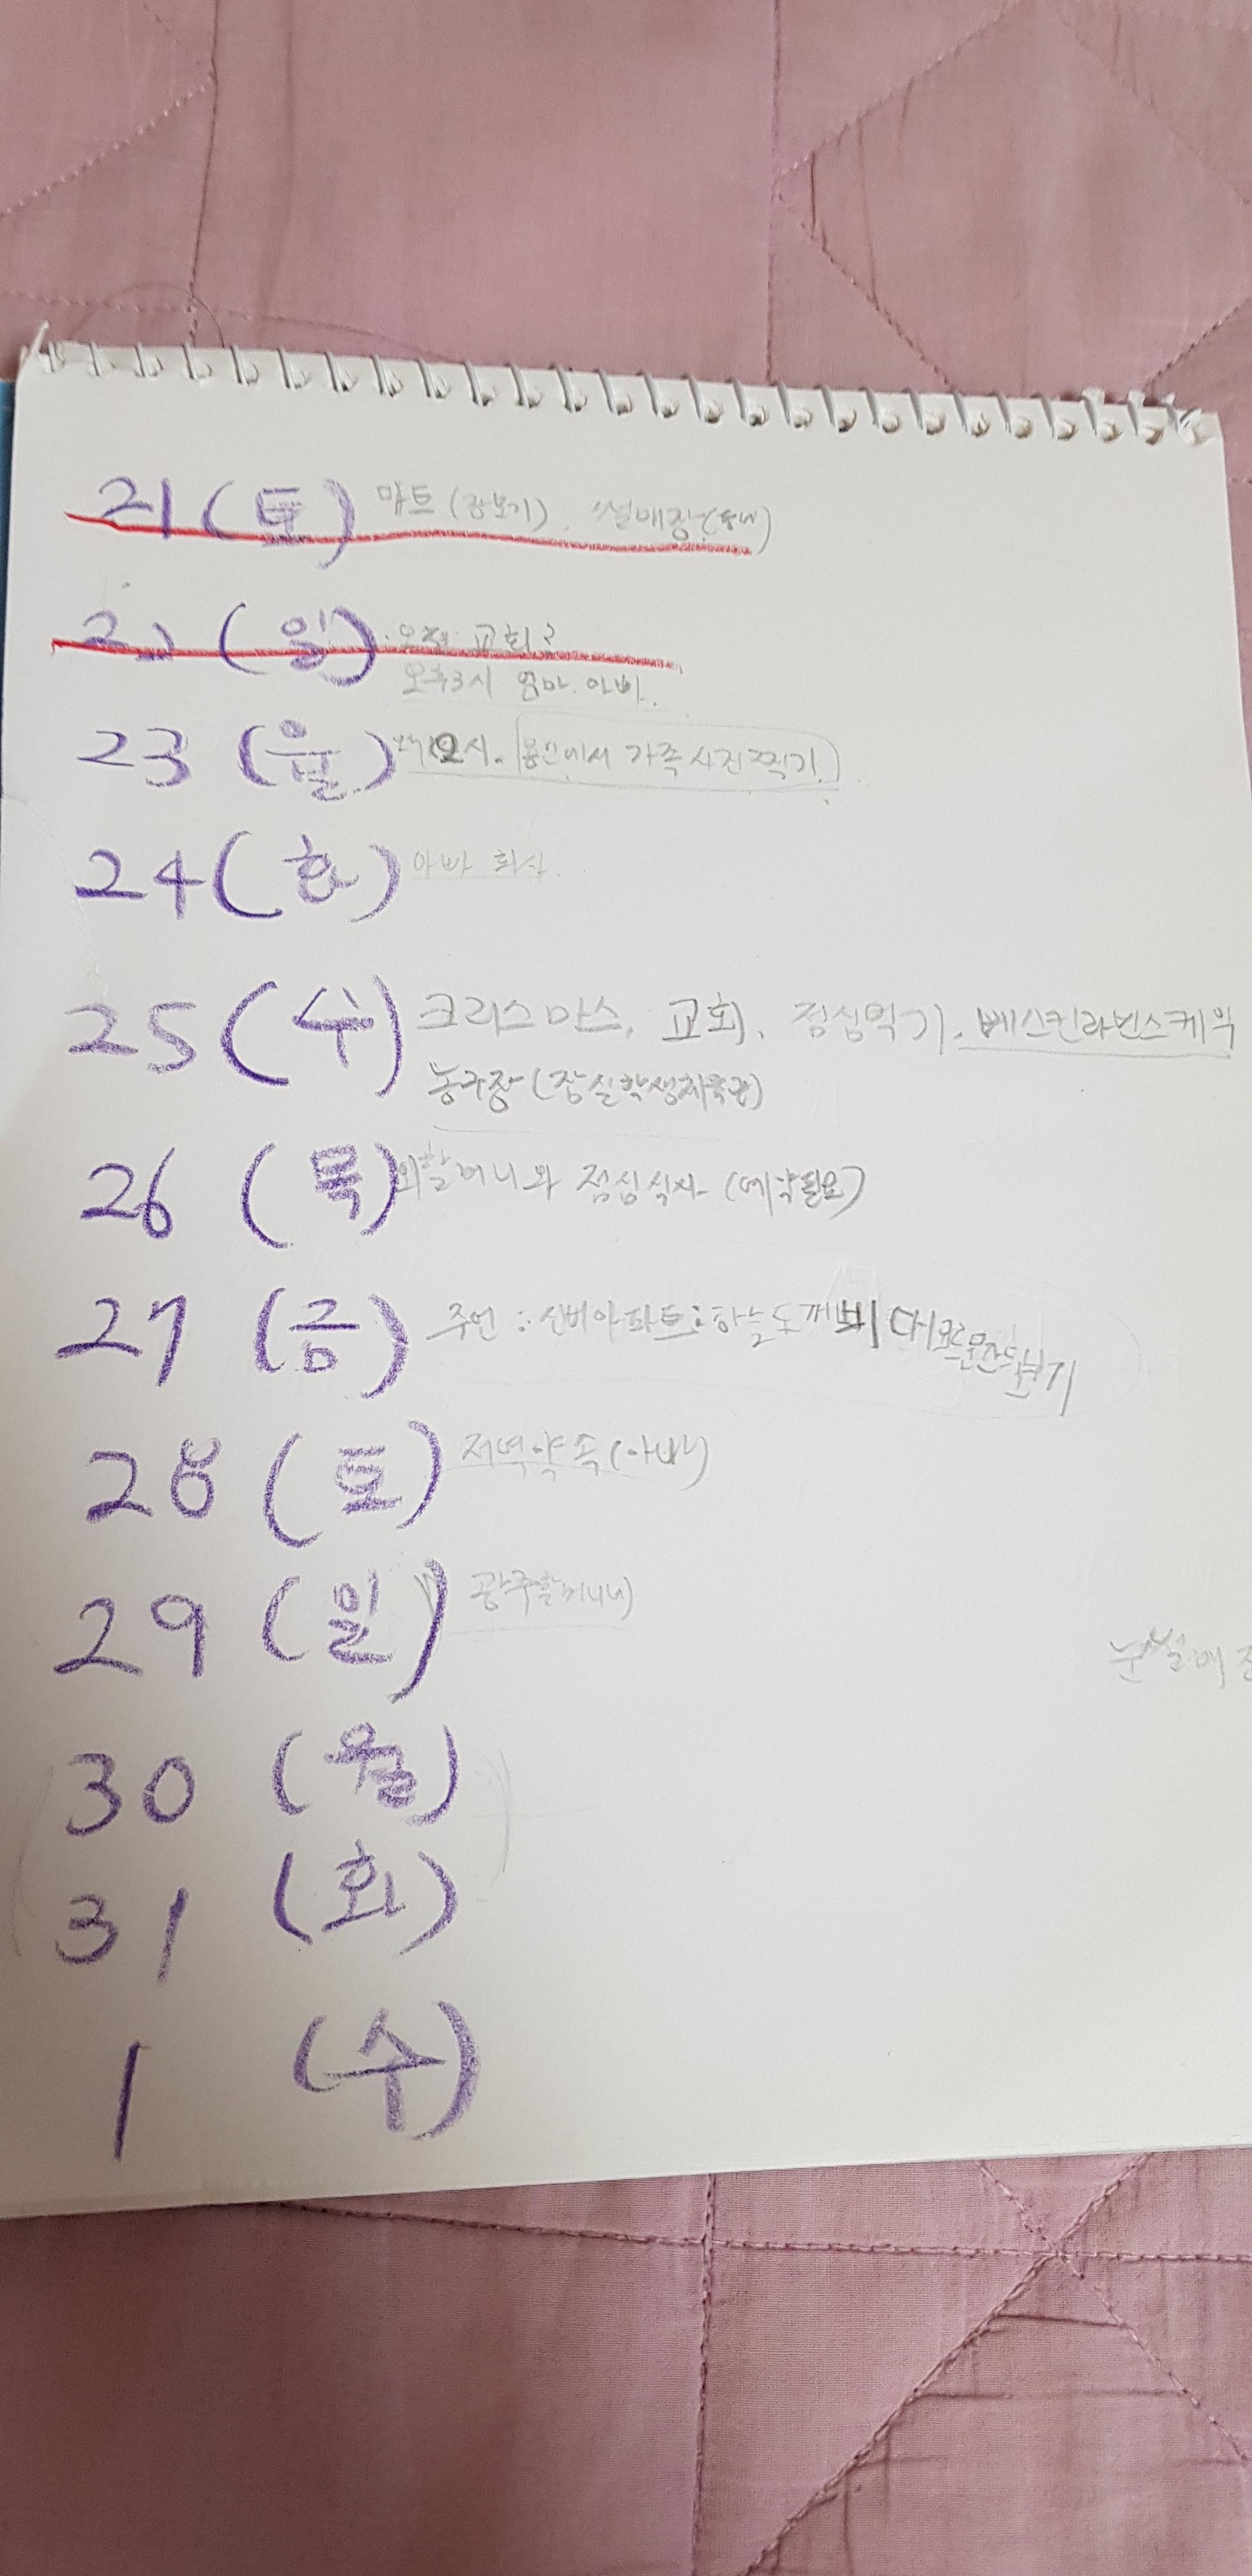 21 (토) 마트(장보기). 썰매장
22 (일) 오전 교회?
오후3시 엄마. 아빠.
23 (월) 2시. 용산에서 가족사진찍기.
24 (화) 아빠 회사
25 (수) 크리스마스. 교회. 점심먹기. 베스킨라빈스케익
농구장(잠실학생체육관)
26 (목) 외할머니와 점심식사 (예약필요)
27 (금) 주언 : 신비아파트:하늘도깨비 대 보기
28 (토) 저녁약속(아빠)
29 (일) 광주할머니네)
눈썰매장
30 (월)
31 (화)
1 (수)